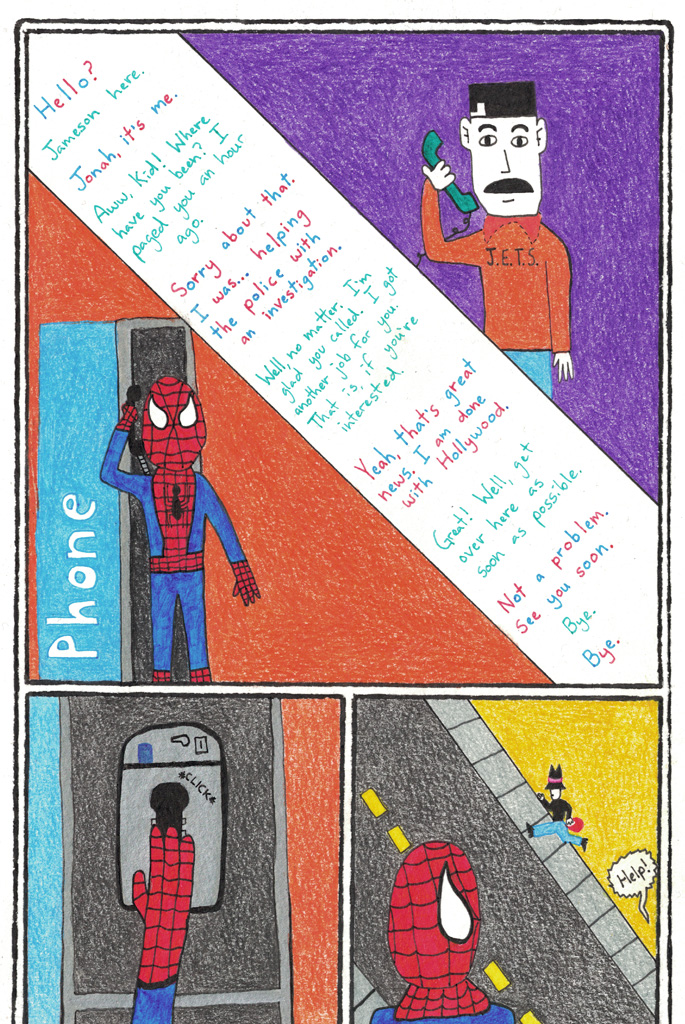 Hello?
Jameson here.
Jonah, it's me.
Aww, Kid! Where
have you been? I
paged you an hour
ago.
Sorry about that.
I was... helping
the police with
an investigation.
Well, no matter. I'm
glad you called. I got
another job for you.
That is, if you're
interested.
Yeah, that's great
news. I am done
with Hollywood.
Great! Well, get
over here as
soon as possible.
Not a problem.
See you soon.
Bye.
Bye.
J.E.T.S.
Phone
*CLICK*
Help!